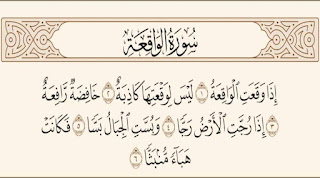 سُورَةُ الوَاقِعَةِ
إِذَا وَقَعَتِ ٱلْوَاقِعَةُ ١ لَيْسَ لِوَقْعَتِهَا كَاذِبَةٌ ٢ خَافِضَةٌ رَّافِعَةٌ
٣ إِذَا رُجَّتِ ٱلْأَرْضُ رَجًّا ٤ وَبُسَّتِ ٱلْجِبَالُ بَسًّا ٥ فَكَانَتْ
هَبَآءً مُّنۢبَثًّا ٦